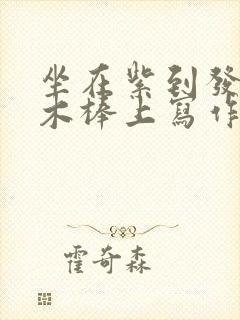 坐在紫到發
木棒上寫作
霍奇森